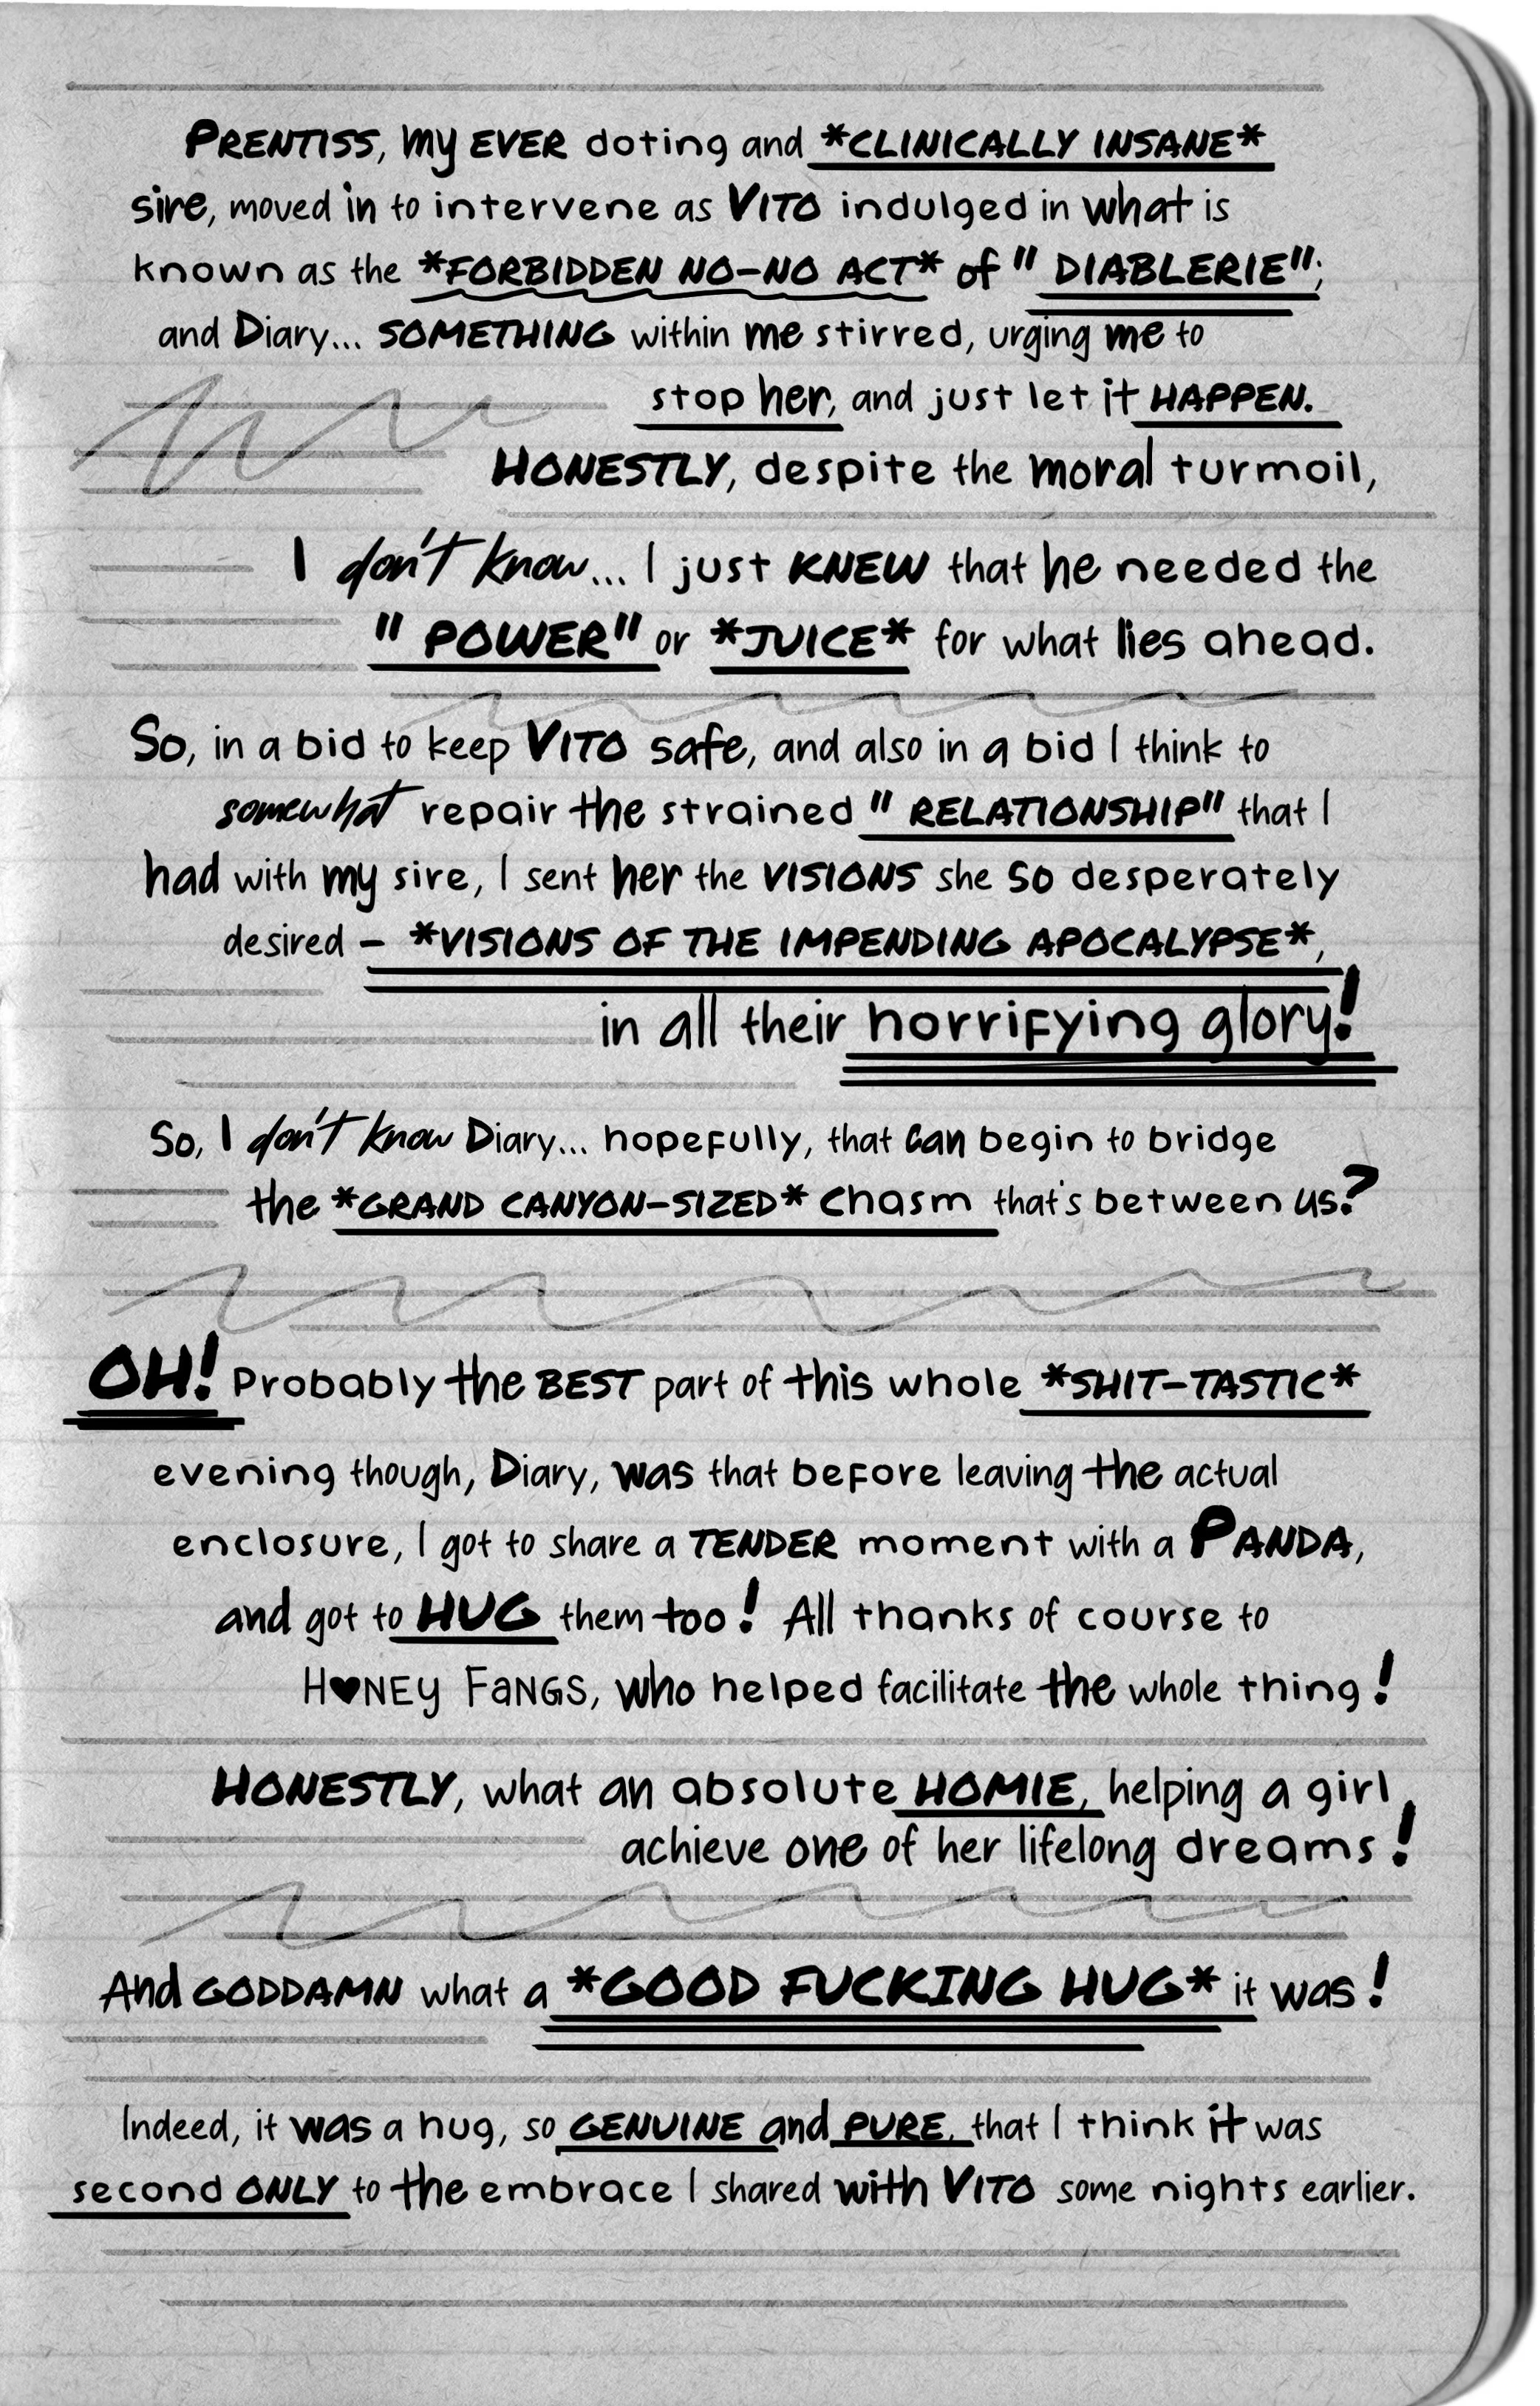 PRENTISS, my EVER doting and *CLINICALLY INSANE*
sire, moved in to intervene as VITO indulged in what is
known as the *FORBIDDEN NO-NO ACT* of "DIABLERIE";
and Diary... SOMETHING within me stirred, urging me to
stop her, and just let it HAPPEN.
HONESTLY, despite the moral turmoil,
I don't know... I just KNEW that he needed the
"POWER" or *JUICE* for what lies ahead.
So, in a bid to keep VITO safe, and also in a bid I think to
somewhat repair the strained "RELATIONSHIP" that I
had with my sire, I sent her the VISIONS she so desperately
desired – *VISIONS OF THE IMPENDING APOCALYPSE*,
in all their horrifying glory!
So, I don't know Diary... hopefully, that can begin to bridge
the *GRAND CANYON-SIZED* chasm that's between us?
OH! Probably the BEST part of this whole *SHIT-TASTIC*
evening though, Diary, was that before leaving the actual
enclosure, I got to share a TENDER moment with a PANDA,
and got to HUG them too! All thanks of course to
H♥NEY FANGS, who helped facilitate the whole thing!
HONESTLY, what an absolute HOMIE, helping a girl
achieve one of her lifelong dreams!
And GODDAMN what a *GOOD FUCKING HUG* it was!
Indeed, it was a hug, so GENUINE and PURE, that I think it was
second ONLY to the embrace I shared with VITO some nights earlier.